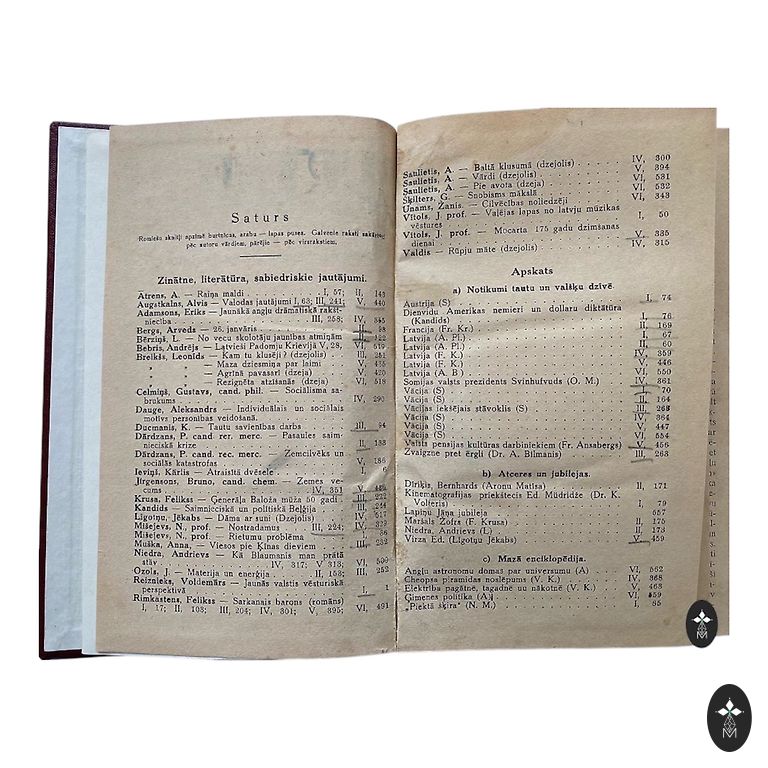 Saturs
Romiešu skaitļi apzīmē burtnīcas, arabu — lapas puses. Galvenie raksti sakārtoti
pēc autoru vārdiem, pārējie — pēc virsrakstiem.
Zinātne, literātūra, sabiedriskie jautājumi.
Atrens, A. — Raiņa maldi . . . . . . I, 57; II, 143
Augstkalns, Alvis — Valodas jautājumi I, 63; III, 241; V, 440
Adamsons, Eriks — Jaunākā angļu drāmatiskā rakst-
niecība . . . . . . III, 258; IV, 345
Bergs, Arveds — 26. janvāris . . . . II, 98
Bērziņš, L. — No vecu skolotāju jaunības atmiņām II, 122
Bebris, Andrējs — Latvieši Padomju Krievijā V, 28, VI, 519
Breikšs, Leonīds — Kam tu klusēji? (dzejolis) III, 251
" " — Maza dziesmiņa par laimi V, 435
" " — Agrīnā pavasarī (dzeja) V, 425
" " — Rezignēta atzīšanās (dzeja) VI, 518
Celmiņš, Gustavs, cand. phil. — Sociālisma sa-
brukums . . . . . . IV, 290
Dauge, Aleksandrs — Individuālais un sociālais
motīvs personības veidošanā.
Ducmanis, K. — Tautu savienības darbs . . III, 94
Dārdzans, P. cand. rer. merc. — Pasaules saimnie-
ciskā krize . . . . II, 133
Dārdzans, P. cand. rec. merc. — Zemcilvēks un
sociālās katastrofas . . . . V, 186
Ieviņš, Kārlis — Atraisītā dvēsele . . . I, 6
Jirgensons, Bruno, cand. chem. — Zemes ve-
cums . . . . IV, 351 V, 436
Krusa, Felikss — Ģenerāļa Baloža mūža 50 gadi . III, 222
Kandids — Saimnieciskā un politiskā Beļģija . III, 244
Līgotņu, Jēkabs — Dāma ar suni (Dzejolis) . VI, 517
Mišejevs, N., prof. — Nostradamus . III, 224; IV, 329
Mišejevs, N., prof. — Rietumu problēma . . I, 36
Muška, Anna, — Viesos pie Ķīnas dieviem . III, 232
Niedra, Andrievs — Kā Blaumanis man prātā
stāv . . . . IV, 317; V, 313; VI, 500
Ozols, J. — Materija un enerģija . . II, 153; III, 252
Reiznieks, Voldemārs — Jaunās valstis vēsturiskā
perspektīvā . . . . I, 1
Rimkastens, Felikss — Sarkanais barons (romāns)
I, 17; II, 103; III, 204, IV, 301; V, 395; VI, 491
Saulietis, A. — Baltā klusumā (dzejolis) . . . IV, 300
Saulietis, A. — Vārdi (dzejolis) . . . V, 394
Saulietis, A. — Pie avota (dzeja) . . . VI, 531
Šķilters, G. — Snobisms mākslā . . . VI, 532
Unams, Žanis — Cilvēcības noliedzēji . . . VI, 343
Vītols, J. prof. — Vaļējas lapas no latvju mūzikas
vēstures . . . . I, 50
Vītols, J. prof. — Mocarta 175 gadu dzimšanas
dienai . . . . V, 335
Valdis — Rūpju māte (dzejolis) . . . IV, 315
Apskats
a) Notikumi tautu un valstķu dzīvē.
Austrija (S) . . . . I, 74
Dienvidu Amerikas nemieri un dollaru diktātūra
(Kandids) . . . . I, 76
Francija (Fr. Kr.) . . . . II, 169
Latvija (A. Pl.) . . . . I, 67
Latvija (A. Pl.) . . . . II, 60
Latvija (F. K.) . . . . IV, 359
Latvija (F. K.) . . . . V, 446
Latvija (A. B.) . . . . VI, 550
Somijas valsts prezidents Svinhufvuds (O. M.) . . IV, 361
Vācija (S) . . . . I, 70
Vācija (S) . . . . II, 164
Vācijas iekšējais stāvoklis (S) . . . III, 268
Vācija (S) . . . . IV, 364
Vācija (S) . . . . V, 447
Vācija (S) . . . . VI, 554
Valsts pensijas kultūras darbiniekiem (Fr. Ansabergs) V, 456
Zvaigzne pret ērgli (Dr. A. Bilmanis) . . . III, 263
b) Atceres un jubilejas.
Diriķis, Bernhards (Aronu Matīsa) . . . II, 171
Kinematografijas priekštecis Ed. Mūdridže (Dr. K.
Volfers) . . . . I, 79
Lapiņu Jāņa jubileja . . . . 557
Maršals Žofrs (F. Krusa) . . . II, 175
Niedra, Andrievs (L) . . . II, 173
Virza Ed. (Līgotņu Jēkabs) . . . V, 459
c) Mazā enciklopēdija.
Angļu astronomu domas par universumu (A) . . VI, 562
Cheopsa piramīdas noslēpums (V. K.) . . . IV, 368
Elektrība pagātnē, tagadnē un nākotnē (V. K.) . V, 463
Ģimenes politika (A) . . . . VI, 559
„Piektā šķira“ (N. M.) . . . . I, 85
M
M